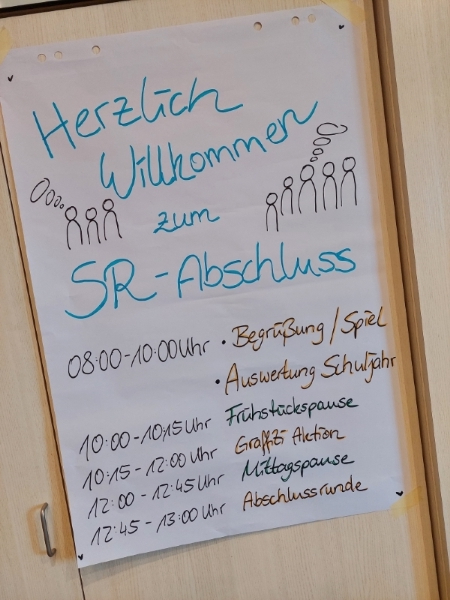 Herzlich
Willkommen
zum
SR-Abschluss
08:00-10:00 Uhr • Begrüßung / Spiel
• Auswertung Schuljahr
10:00-10:15 Uhr Frühstückspause
10:15-12:00 Uhr Graffiti Aktion
12:00-12:45 Uhr Mittagspause
12:45-13:00 Uhr Abschlussrunde